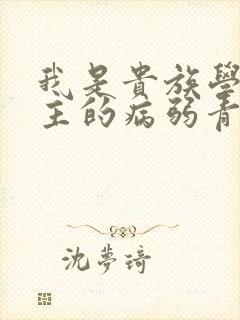 我是貴族學
主的病弱青
沈夢琦